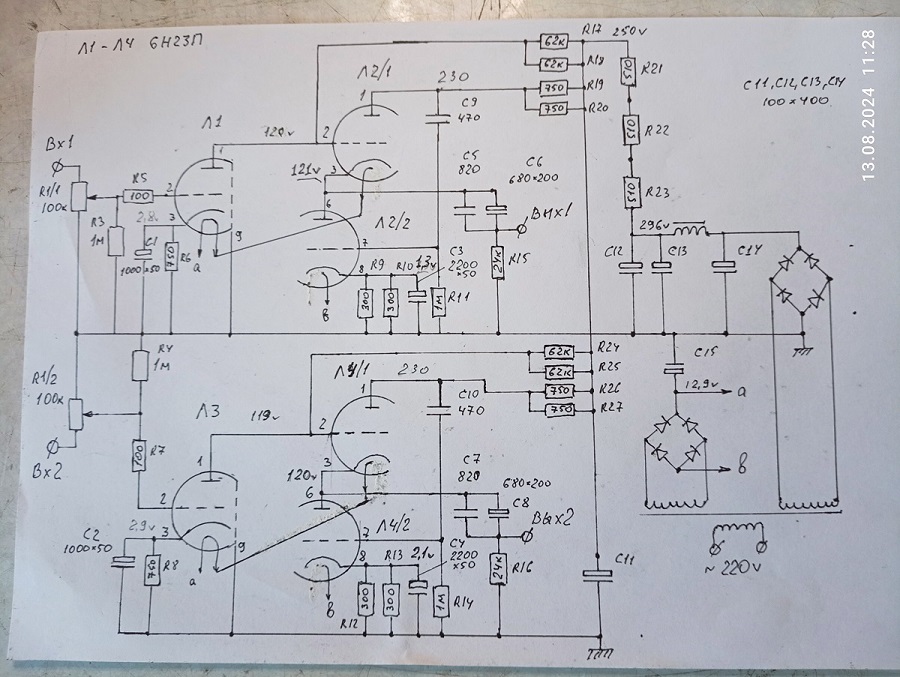 Л1 - Л4 6Н23П
R17 250v
62к
62к R18
750 R19
750 R20
510 R21
510 R22
510 R23
С11, С12, С13, С14
100×400
13.08.2024 11:28
Л2/1
1
230
С9
470
Л1
1
120v
2
3
121v
Вх1
R1/1
100к
R5
100
2
R3
1М
2,8
3
С1
1000×50
R6
750
9
а
6
Л2/2
7
8
в
С5
820
С6
680×200
Вых1
R15
24к
R9
300
R10
300
С3
2200
×50
R11
1М
296v
С12
С13
С14
R4
1М
R1/2
100к
Вх2
R7
100
Л3
1
119v
2
3
2,9v
С2
1000×50
R8
750
9
а
Л4/1
1
230
2
3
120v
6
Л4/2
7
8
в
С10
470
62к R24
62к R25
750 R26
750 R27
С7
820
680×200
С8
Вых2
R16
24к
R12
300
R13
300
2,1v
С4
2200
×50
R14
1М
С11
С15
12,9v
а
в
~ 220v